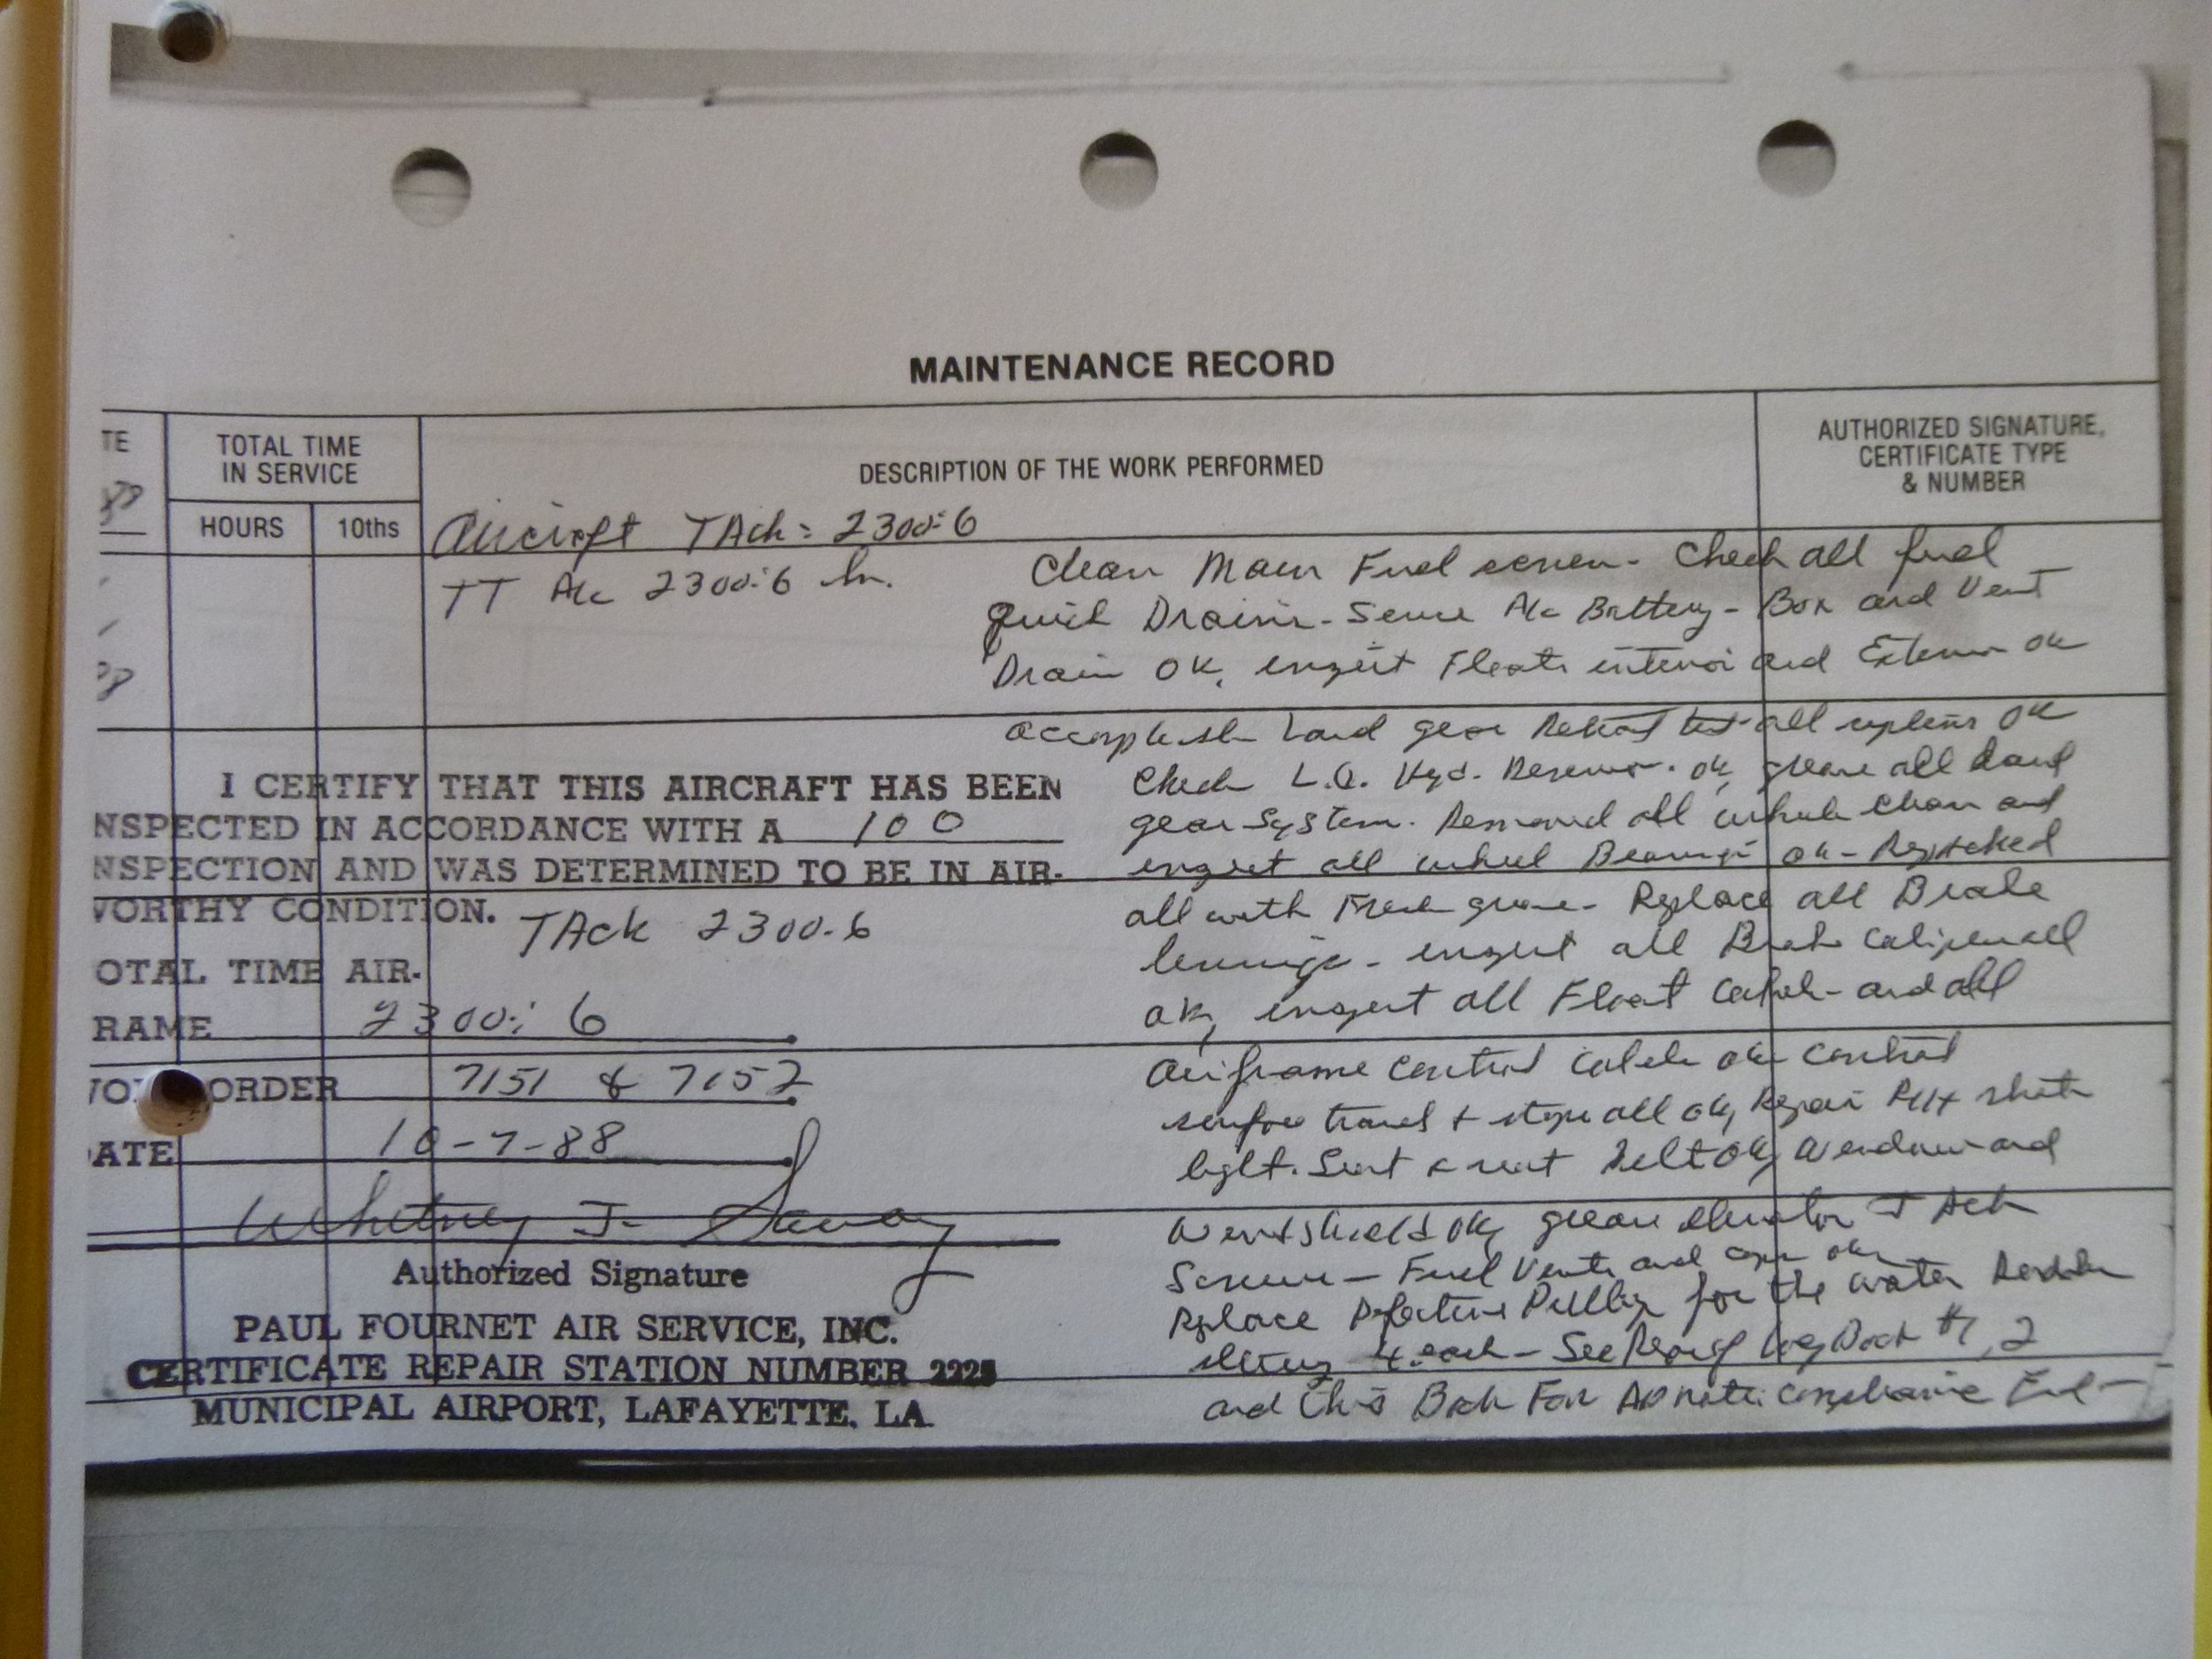 MAINTENANCE RECORD
TE
TOTAL TIME
IN SERVICE
HOURS
10ths
DESCRIPTION OF THE WORK PERFORMED
AUTHORIZED SIGNATURE,
CERTIFICATE TYPE
& NUMBER
Aircraft TAch = 2300.6
TT A/c 2300.6 hr.
Clean Main Fuel screen - Check all fuel
Quick Drains - Service A/c Battery - Box and Vent
Drain OK, inspect Floats interior and Exterior ok
accomplish Land gear Retract test all systems OK
Check L.G. Hyd. Reservoir ok, grease all Land
gear System. Removed all wheels clean and
inspect all wheel Bearings ok - Repacked
all with Fresh grease - Replace all Brake
linings - inspect all Brake calipers all
ok, inspect all Float cables and all
airframe control cables ok control
surface travel & stops all ok, Repair
light. Seat & seat Belt ok, Window and
Windshield ok, grease elevator T Ack
Screws - Fuel Vents and caps ok
Replace Defective Pulley for the water Rudder
4 each - See Log Book #1, 2
and this Book For AD note compliance End -
I CERTIFY THAT THIS AIRCRAFT HAS BEEN
NSPECTED IN ACCORDANCE WITH A 100
NSPECTION AND WAS DETERMINED TO BE IN AIR-
VORTHY CONDITION.
TAck 2300.6
OTAL TIME AIR-
RAME 2300.6
ORDER 7151 & 7152
ATE 10-7-88
Whitney J. Savoy
Authorized Signature
PAUL FOURNET AIR SERVICE, INC.
CERTIFICATE REPAIR STATION NUMBER 2225
MUNICIPAL AIRPORT, LAFAYETTE, LA.